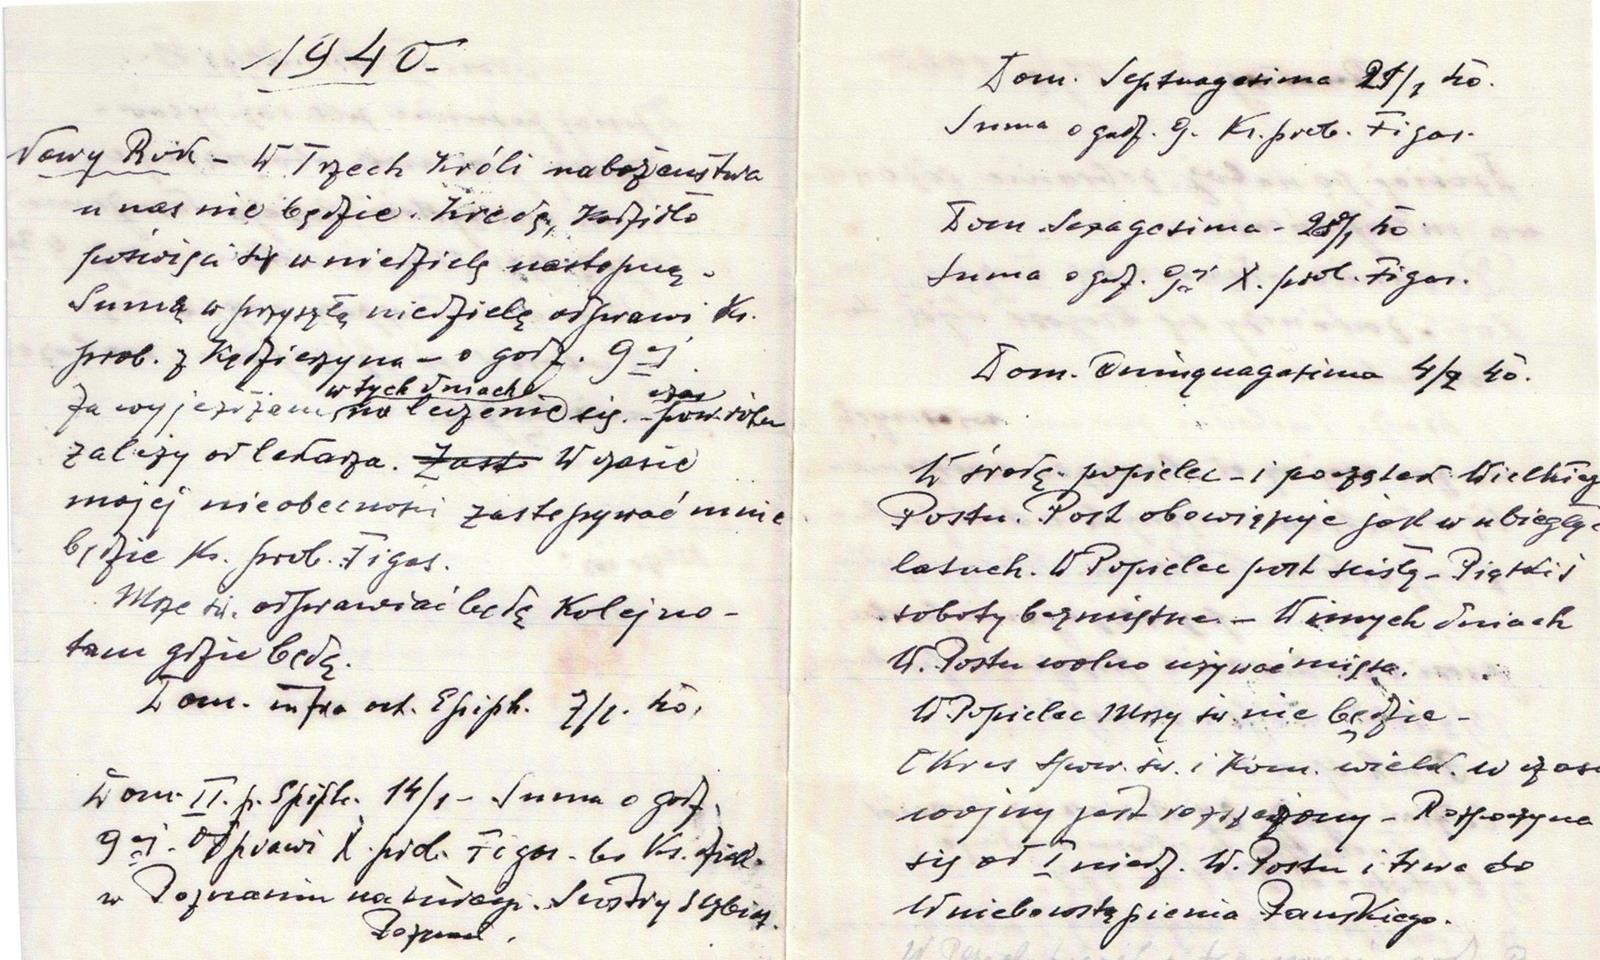 1940.
Nowy Rok - W Trzech Króli nabożeństwa
u nas nie będzie. Kredę, Kadzidło
poświęci się w niedzielę następną.
Sumę w przyszłą niedzielę odprawi Ks.
prob. z Kędzierzyna - o godz. 9ej
w tych dniach czas
Ja wyjeżdżam na leczenie się. - powrotu
zależy od lekarza. W czasie
mojej nieobecności zastępywać mnie
będzie Ks. prob. Figas.
Msze św. odprawiać będę Kolejno -
tam gdzie będę.
Dom. infra oct. Epiph. 7/1. 40.
Dom. II. p. Epiph. 14/1 - Suma o godz.
9ej. Odprawi X. prob. Figas - bo Ks. dziek.
w Poznaniu na
Dom. Septuagesima 21/1 40.
Suma o godz. 9. Ks. prob. Figas.
Dom. Sexagesima - 28/1 40
Suma o godz. 9ej X. prob. Figas.
Dom. Quinquagesima 4/2 40.
W środę popielec - i początek Wielkieg
Postu. Post obowiązuje jak w ubiegłyc
latach. W Popielec post ścisły - Piątki i
soboty bezmięsne - W innych dniach
W. Postu wolno używać mięsa.
W Popielec Mszy św. nie będzie -
Okres Spow. św. i Kom. wielk. w czasi
wojny jest rozszerzony - Rozpoczyna
się od I niedz. W. Postu i trwa do
Wniebowstąpienia Pańskiego.